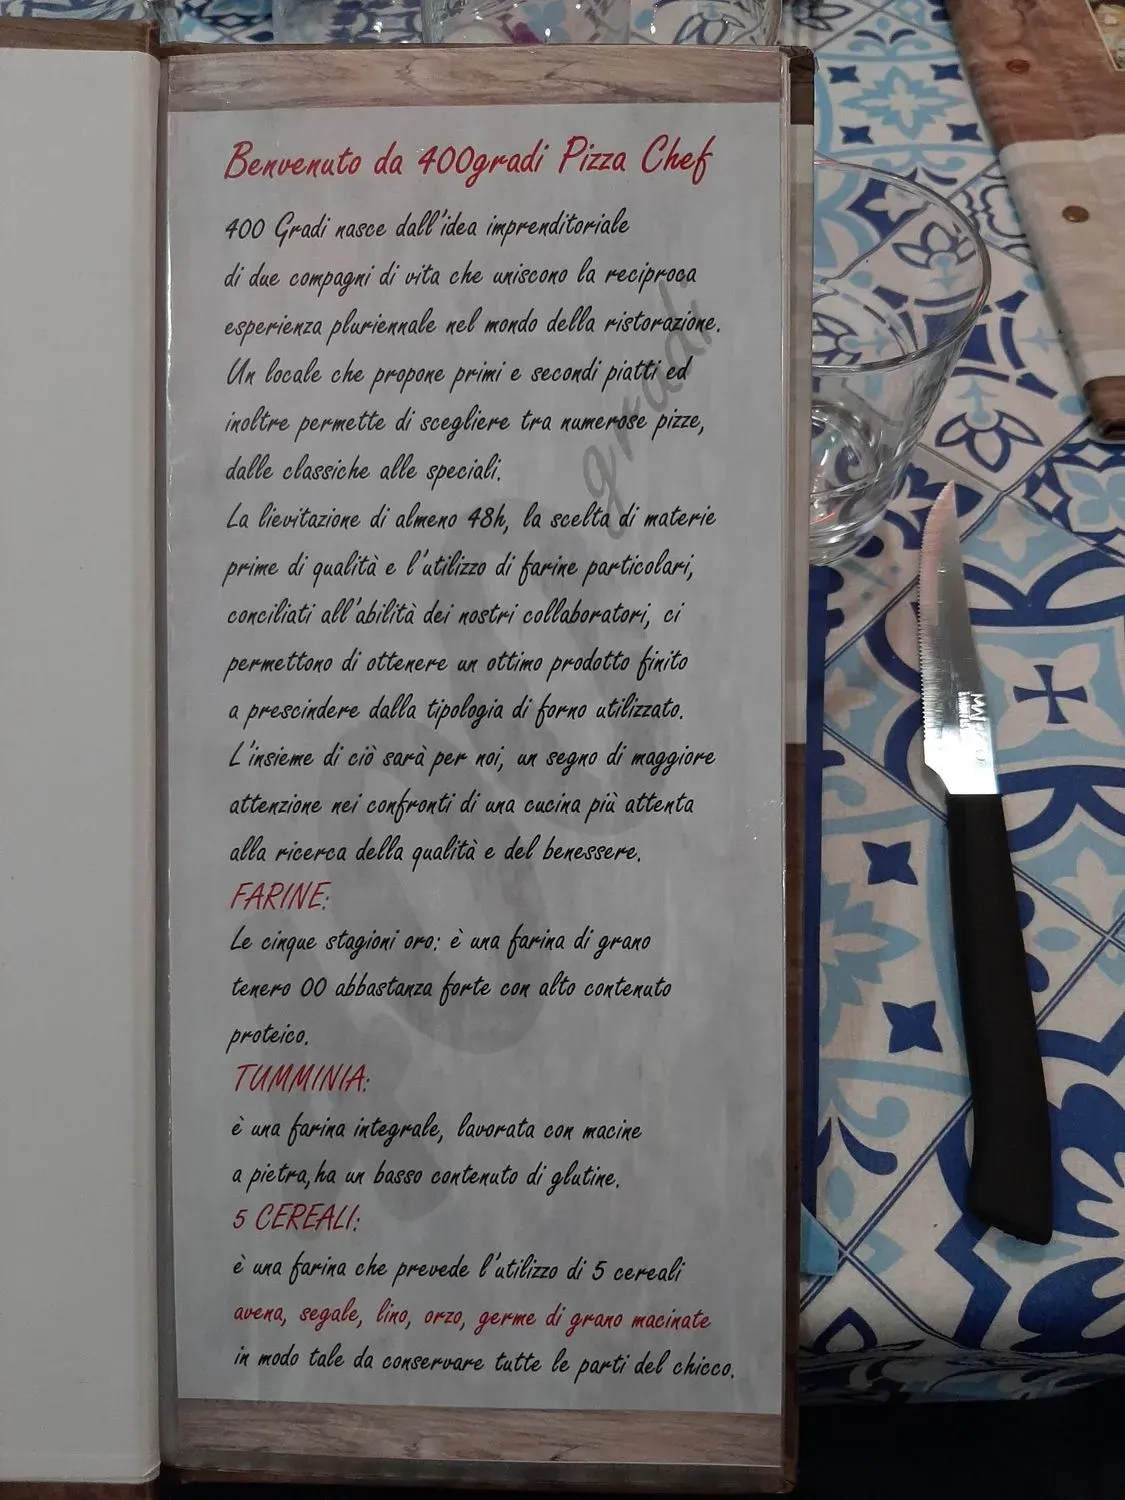 Benvenuto da 400gradi Pizza Chef
400 Gradi nasce dall'idea imprenditoriale
di due compagni di vita che uniscono la reciproca
esperienza pluriennale nel mondo della ristorazione.
Un locale che propone primi e secondi piatti ed
inoltre permette di scegliere tra numerose pizze,
dalle classiche alle speciali.
La lievitazione di almeno 48h, la scelta di materie
prime di qualità e l'utilizzo di farine particolari,
conciliati all'abilità dei nostri collaboratori, ci
permettono di ottenere un ottimo prodotto finito
a prescindere dalla tipologia di forno utilizzato.
L'insieme di ciò sarà per noi, un segno di maggiore
attenzione nei confronti di una cucina più attenta
alla ricerca della qualità e del benessere.
FARINE:
Le cinque stagioni oro: è una farina di grano
tenero 00 abbastanza forte con alto contenuto
proteico.
TUMMINIA:
è una farina integrale, lavorata con macine
a pietra,ha un basso contenuto di glutine.
5 CEREALI:
è una farina che prevede l'utilizzo di 5 cereali
avena, segale, lino, orzo, germe di grano macinate
in modo tale da conservare tutte le parti del chicco.
400 gradi